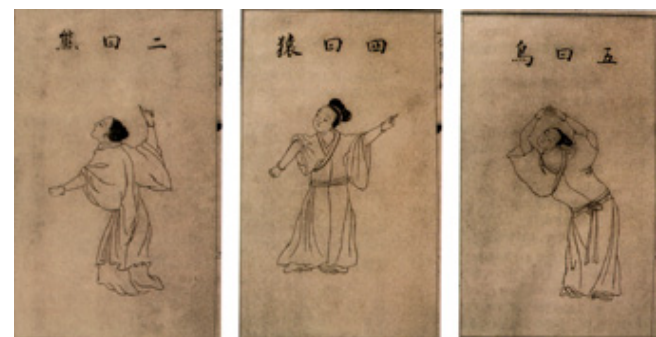 二曰熊
四曰猿
五曰鳥